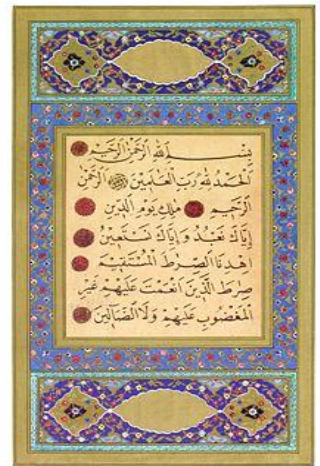 بِسْمِ اللهِ الرَّحْمٰنِ الرَّحِيمِ
اَلْحَمْدُ لِلهِ رَبِّ الْعَالَمِينَ الرَّحْمٰنِ
الرَّحِيمِ مٰلِكِ يَوْمِ الدِّينِ
اِيَّاكَ نَعْبُدُ وَاِيَّاكَ نَسْتَعِينُ
اِهْدِنَا الصِّرَطَ الْمُسْتَقِيمَ
صِرَطَ الَّذِينَ اَنْعَمْتَ عَلَيْهِمْ غَيْرِ
الْمَغْضُوبِ عَلَيْهِمْ وَلَا الضَّالِّينَ